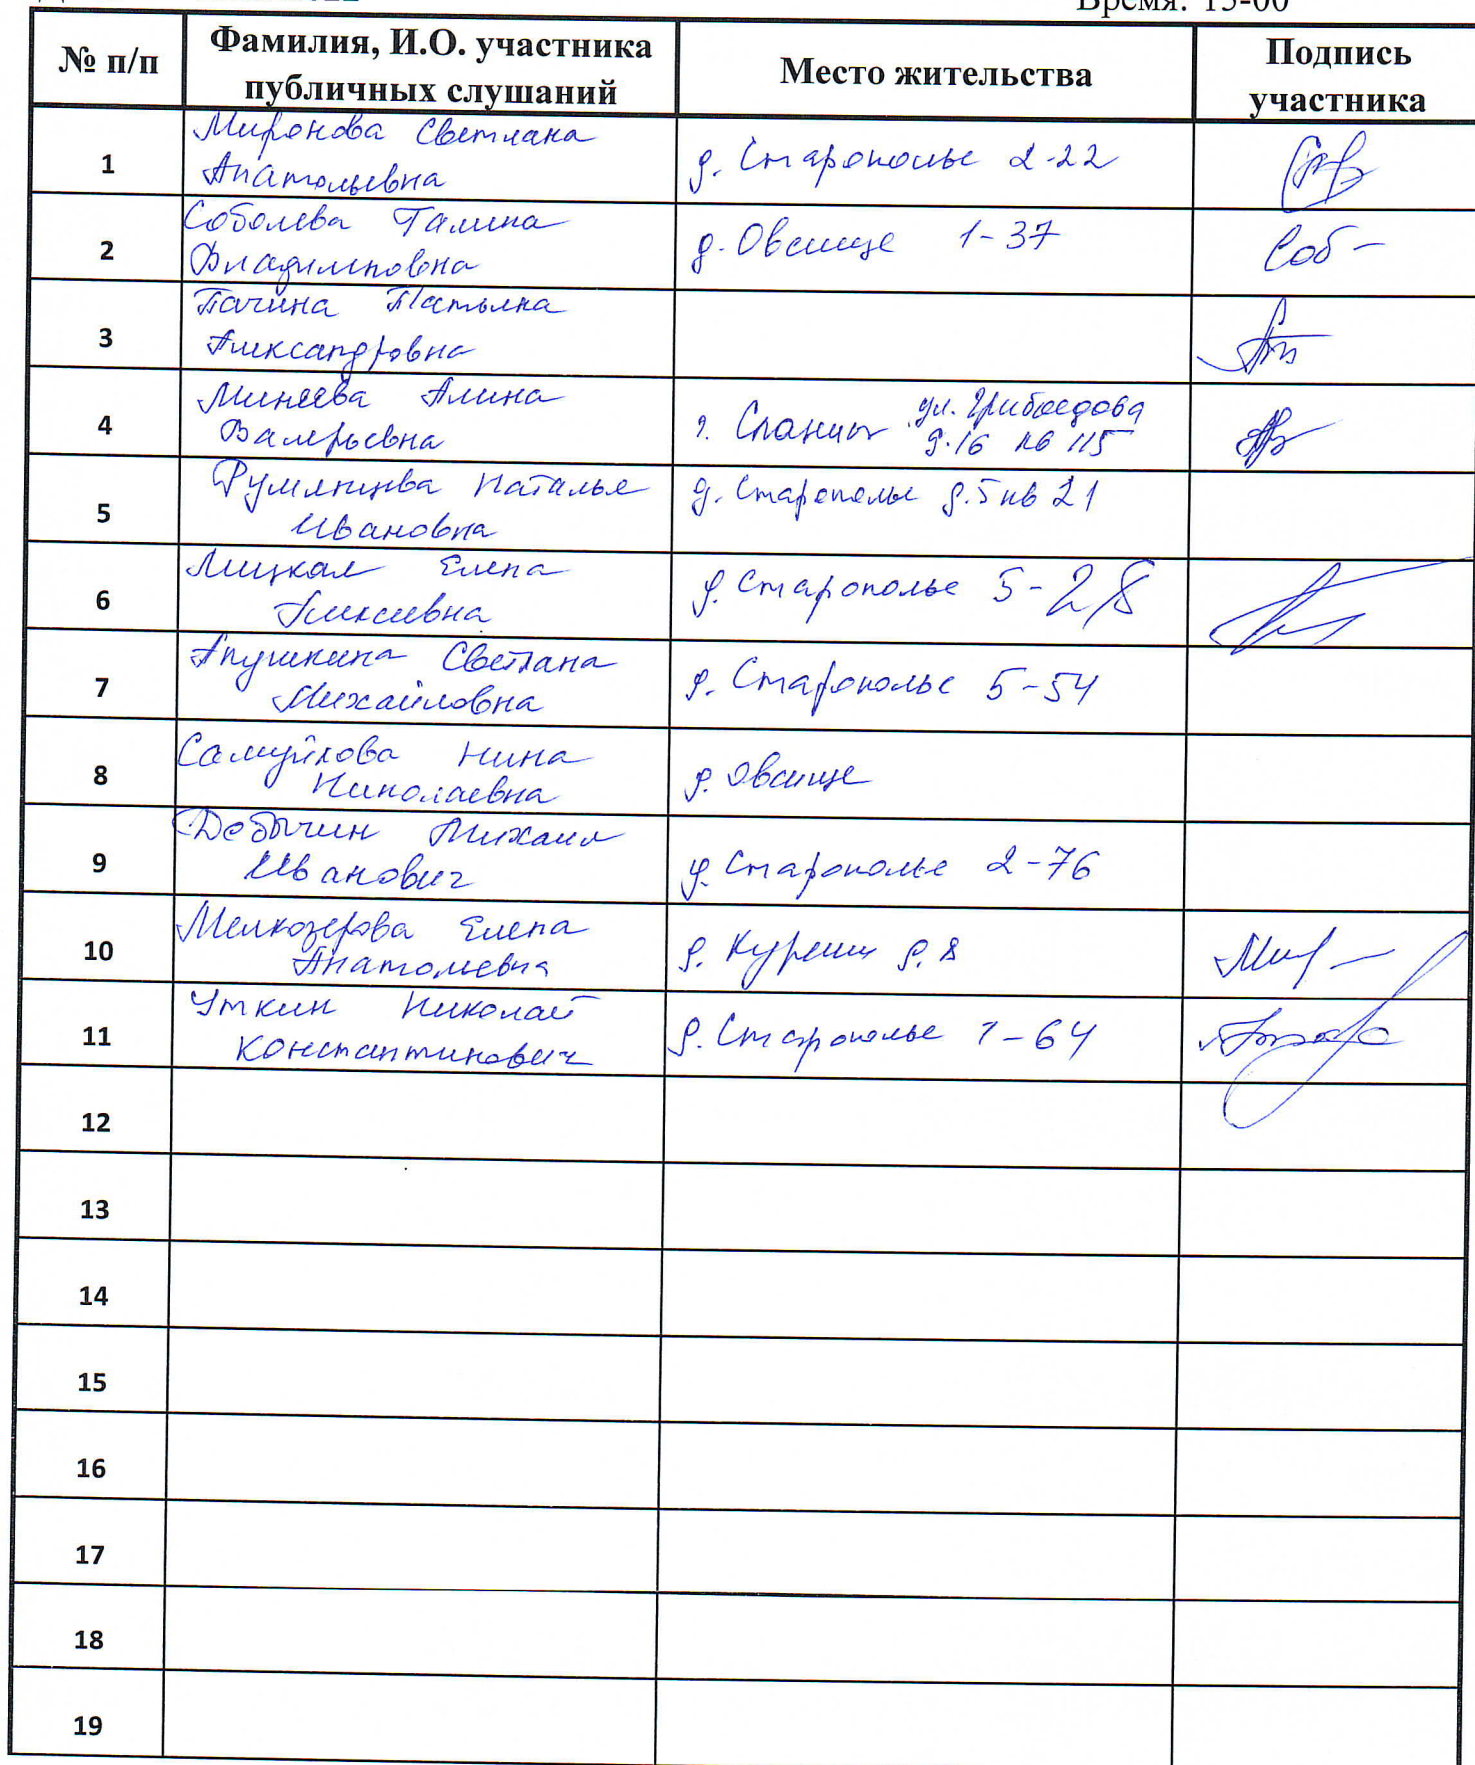 Время: 15-00
№ п/п
Фамилия, И.О. участника
публичных слушаний
Место жительства
Подпись
участника
1
Миронова Светлана
Анатольевна
д. Старополье 2-22
2
Соболева Галина
Владимировна
д. Овсище 1-37
Соб-
3
Пачина Татьяна
Александровна
4
Минеева Алина
Валерьевна
г. Сланцы ул. Грибоедова
д.16 кв 115
5
Румянцева Наталья
Ивановна
д. Старополье д.5 кв 21
6
Лицкал Елена
Алексеевна
д. Старополье 5-28
7
Апушкина Светлана
Михайловна
д. Старополье 5-54
8
Самуйлова Нина
Николаевна
д. Овсище
9
Добычин Михаил
Иванович
д. Старополье 2-76
10
Мелкозерова Елена
Анатольевна
д. Куреши д. 8
11
Уткин Николай
Константинович
д. Старополье 1-64
12
13
14
15
16
17
18
19